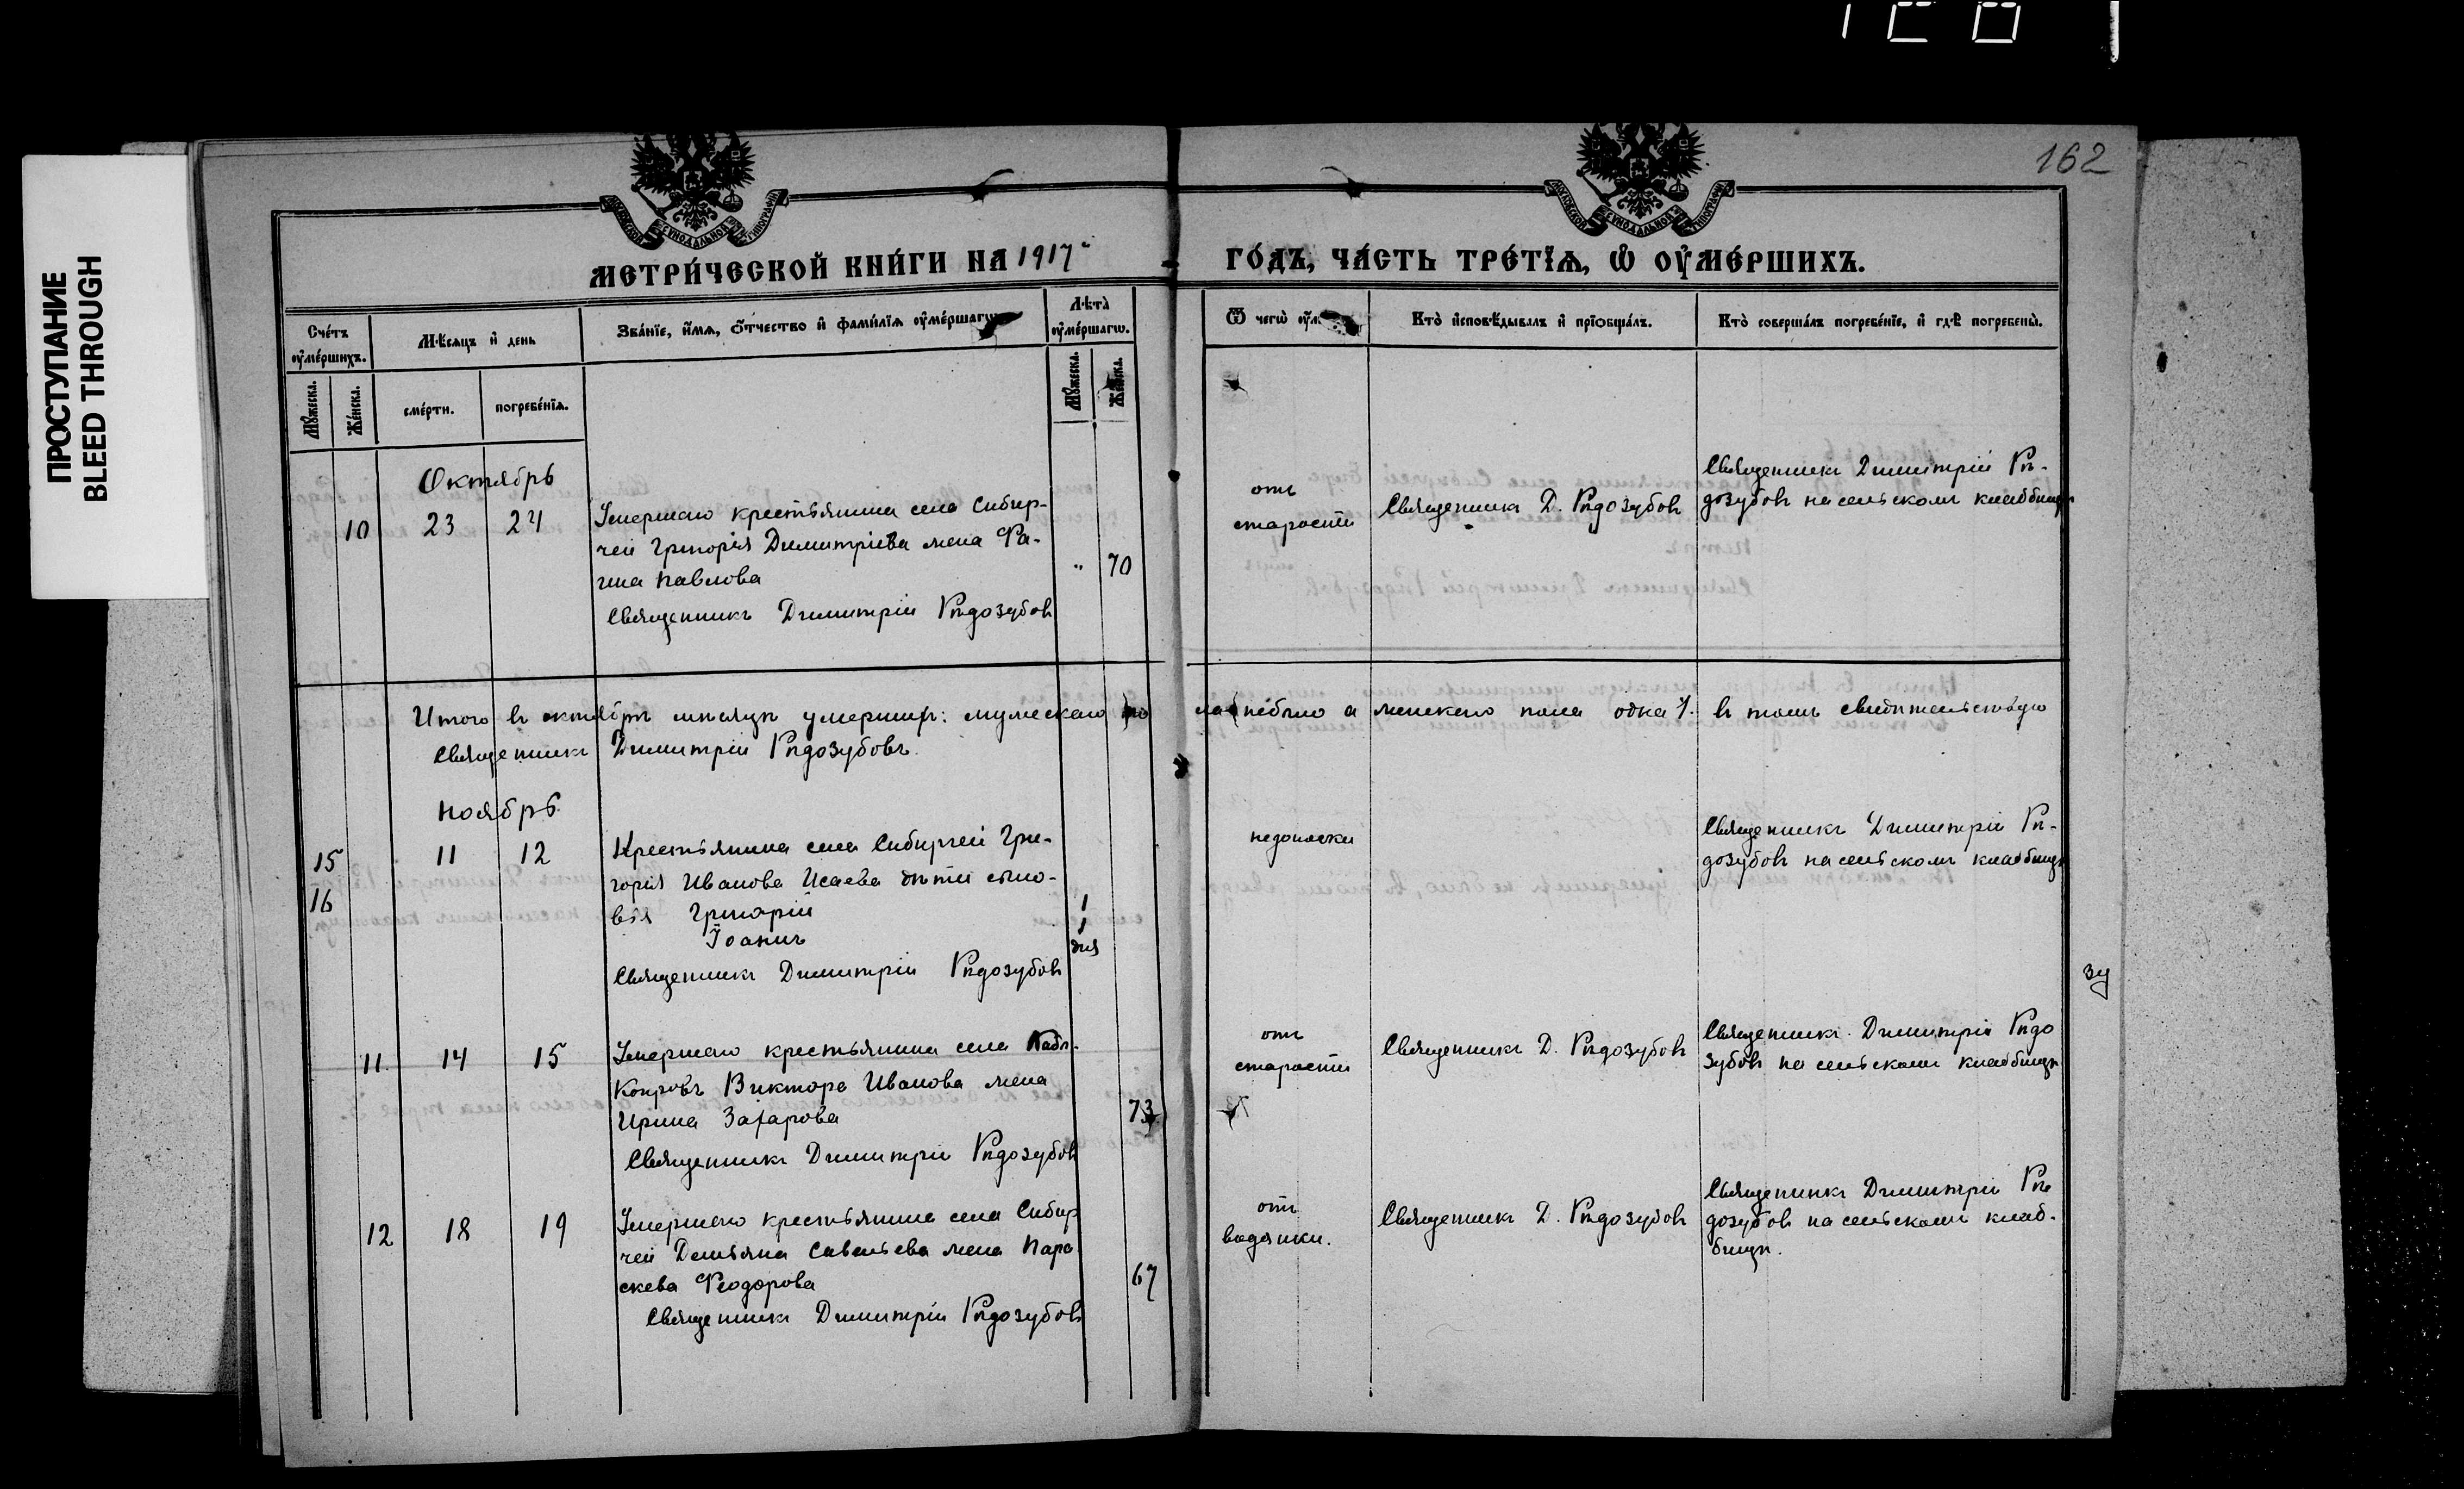 162
ПРОСТУПАНИЕ
BLEED THROUGH
МЕТРИ́ЧЕСКОЙ КНИ́ГИ НА 1917
ГО́ДЪ, ЧА́СТЬ ТРЕ́ТЇѦ, Ѡ҆ ОУ҆МЕ́РШИХЪ.
Сче́тъ оу҆ме́ршихъ.
Мѣ́сѧцъ и҆ день
Зва́нїе, и҆́мѧ, ѻ҆́тчество и҆ фами́лїѧ оу҆ме́ршагѡ
Лѣ́та оу҆ме́ршагѡ.
Ѿ чегѡ̀
Кто̀ и҆сповѣ́дывалъ и҆ прїѡбща́лъ.
Кто̀ соверша́лъ погребе́нїе, и҆ гдѣ̀ погребены̀.
Мꙋ́жеска.
Же́нска.
сме́рти.
погребе́нїѧ.
Мꙋ́жеска.
Же́нска.
Октябрь
10 23 24
Умершаго крестьянина села Сибир-
чей Григорія Димитріева жена Фа-
ина Павлова
" 70
Священникъ Димитрій Рѣдозубовъ
отъ
старости
Священникъ Д. Рѣдозубовъ
Священникъ Димитрій Рѣ-
дозубовъ на сельскомъ кладбищѣ
Итого въ октябрѣ мѣсяцѣ умершихъ: мужескаго по
ла небыло а женскаго пола одна 1. въ томъ свидѣтельствую
Священникъ Димитрій Рѣдозубовъ.
Ноябрь
15
16
11 12
Крестьянина села Сибирчей Гри-
горія Иванова Исаева дѣти сыно-
вья Григорій
Іоаннъ
1
1
дня
Священникъ Димитрій Рѣдозубовъ
недоноски
Священникъ Димитрій Рѣ-
дозубовъ на сельскомъ кладбищѣ
зу
11. 14 15
Умершаго крестьянина села
Виктора Иванова жена
Ирина Захарова
73
Священникъ Димитрій Рѣдозубовъ
отъ
старости
Священникъ Д. Рѣдозубовъ
Священникъ Димитрій Рѣдо
зубовъ на сельскомъ кладбищѣ
12 18 19
Умершаго крестьянина села Сибир
чей Демьяна Савельева жена Пара
скева Ѳеодорова
67
Священникъ Димитрій Рѣдозубовъ
отъ
водянки.
Священникъ Д. Рѣдозубовъ
Священникъ Димитрій Рѣ
дозубовъ на сельскомъ клад-
бищѣ.